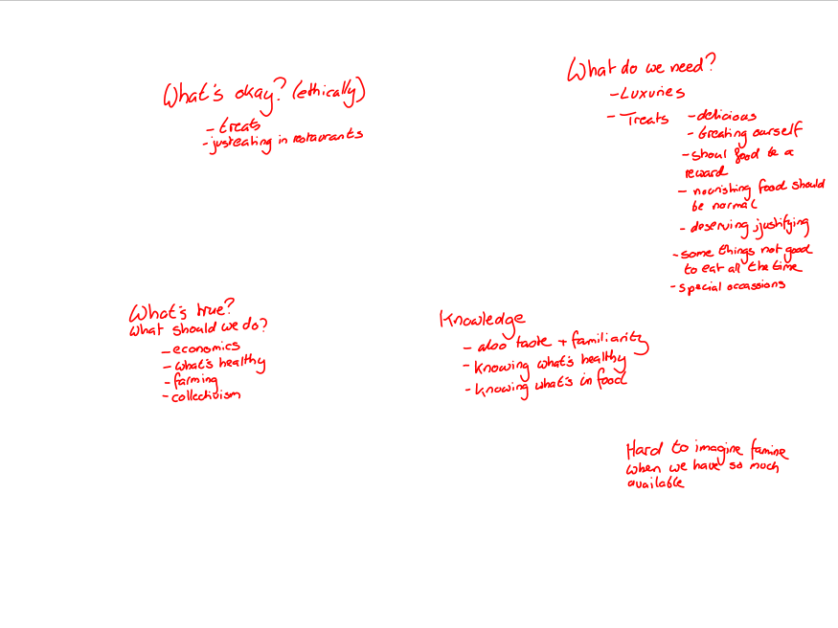 What's okay? (ethically)
- treats
- just eating in restaurants
What do we need?
- Luxuries
- Treats
- delicious
- treating ourself
- shoul food be a
reward
- nourishing food should
be normal
- deserving, justifying
- some things not good
to eat all the time
- special occassions
What's true?
What should we do?
- economics
- what's healthy
- farming
- collectivism
Knowledge
- also taste + familiarity
- knowing what's healthy
- knowing what's in food
Hard to imagine famine
when we have so much
available